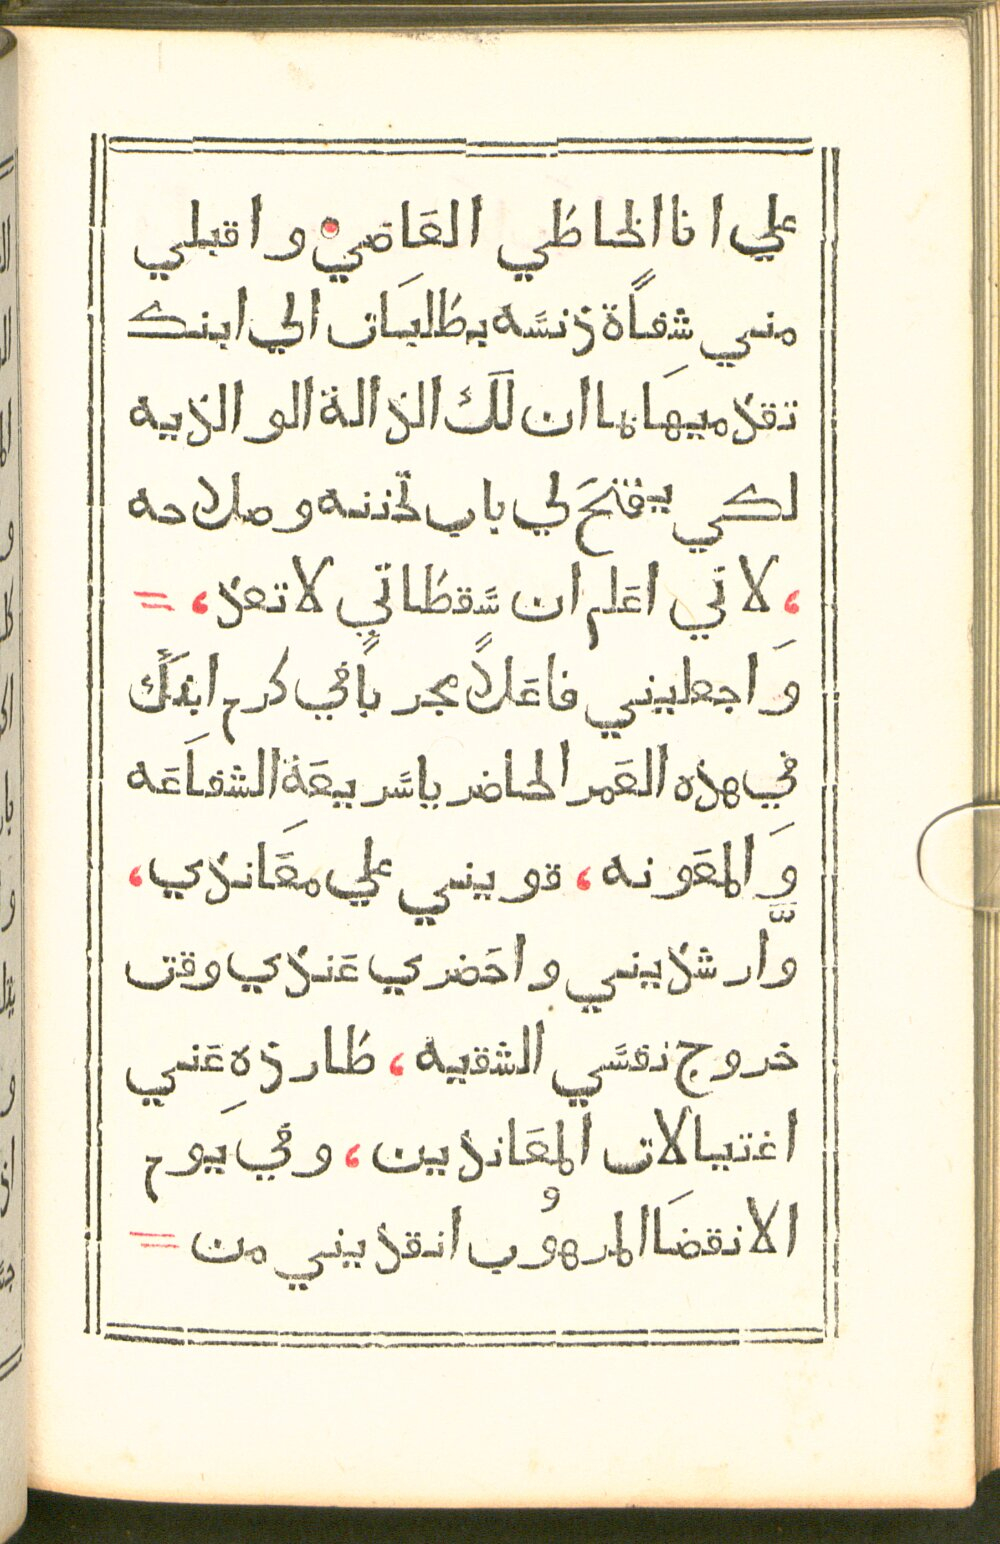 علي انا الخاطي العَاصي و اقبلي
مني شِفاًة دنسَه بطلبَات الي ابنك
تقدميهَا بها ان لَك الدالة الو الديه
لكي يفتحَ لي باب تحننه و صلاحه
، لاني اعَلم ان سَقطاتي لا تعد ، =
وَ اجعليني فاعَلاً مجرباً في كرم ابنَكً
في هذه العَمر الحاضر ياسَريعَة الشفاعَه
وَ المعَونه ، قويني علي معَاندي ،
وَّارشديني و احَضري عَندي وقت
خروج نفسَي الشقيه ، طاردِه عَني
اغتيالات المعَاندين ، وفي يَوم
الانقضَا المرهوب انقديني من =